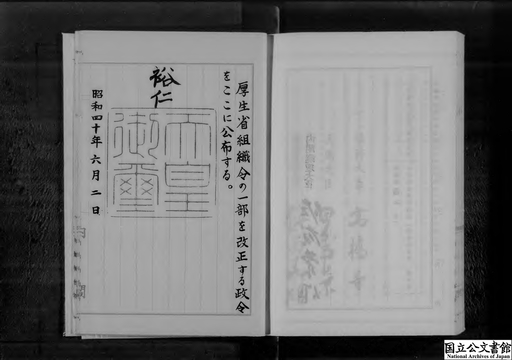 厚生省組織令の一部を改正する政令
をここに公布する。
裕仁
天皇
御璽
昭和四十年六月二日
国立公文書館
National Archives of Japan